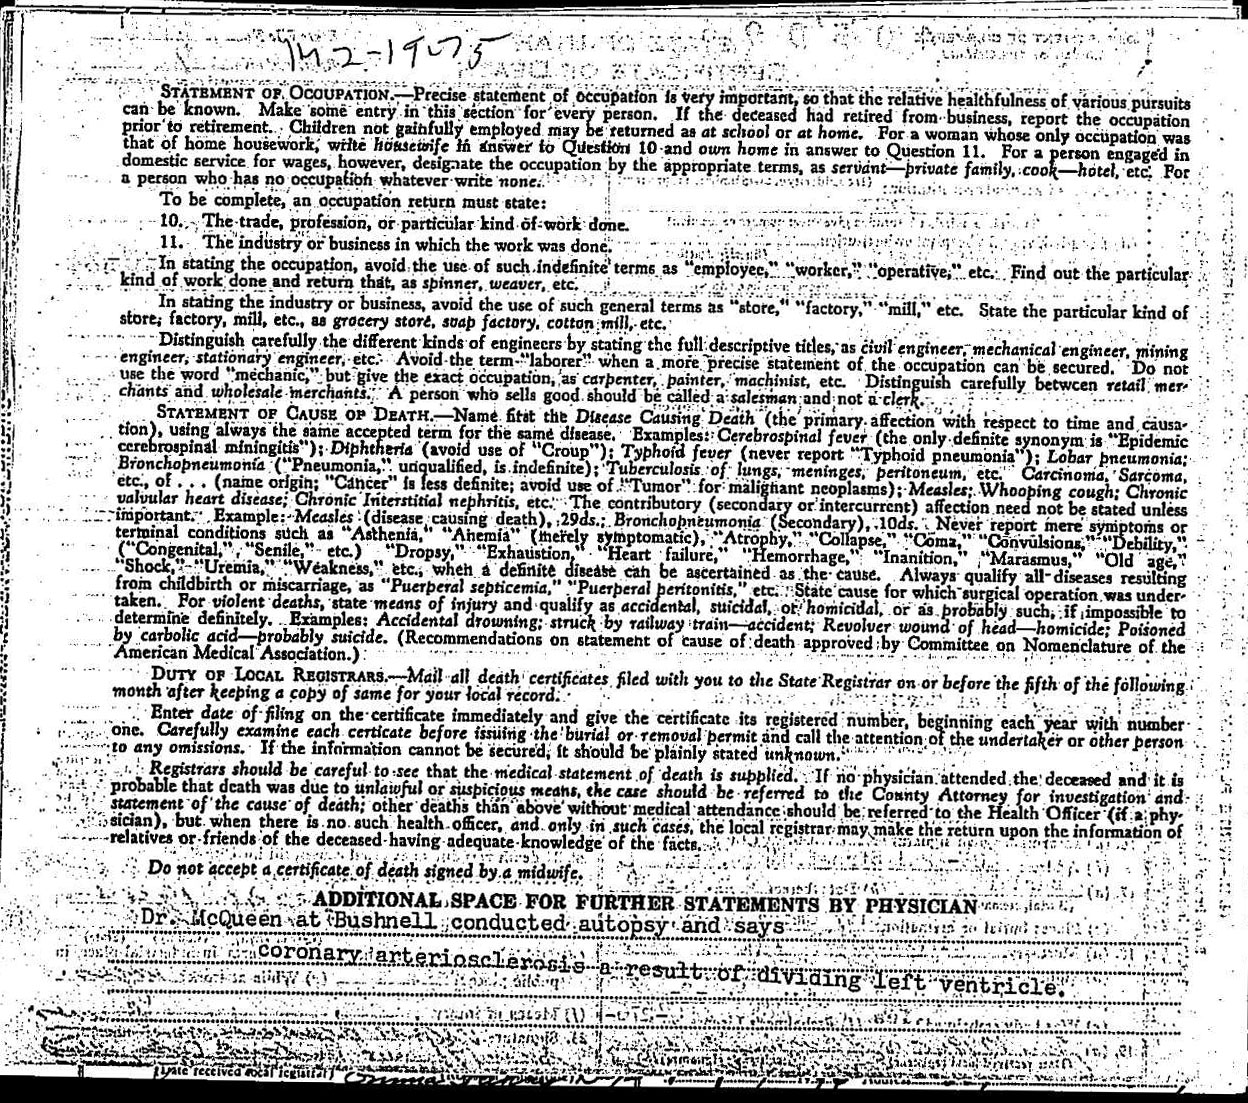 STATEMENT OF OCCUPATION.—Precise statement of occupation is very important, so that the relative healthfulness of various pursuits
can be known. Make some entry in this section for every person. If the deceased had retired from business, report the occupation
prior to retirement. Children not gainfully employed may be returned as at school or at home. For a woman whose only occupation was
that of home housework, write housewife in answer to Question 10 and own home in answer to Question 11. For a person engaged in
domestic service for wages, however, designate the occupation by the appropriate terms, as servant—private family, cook—hotel, etc. For
a person who has no occupation whatever write none.
To be complete, an occupation return must state:
10. The trade, profession, or particular kind of work done.
11. The industry or business in which the work was done.
In stating the occupation, avoid the use of such indefinite terms as "employee," "worker," "operative," etc. Find out the particular
kind of work done and return that, as spinner, weaver, etc.
In stating the industry or business, avoid the use of such general terms as "store," "factory," "mill," etc. State the particular kind of
store, factory, mill, etc., as grocery store, soap factory, cotton mill, etc.
Distinguish carefully the different kinds of engineers by stating the full descriptive titles, as civil engineer, mechanical engineer, mining
engineer, stationary engineer, etc. Avoid the term "laborer" when a more precise statement of the occupation can be secured. Do not
use the word "mechanic," but give the exact occupation, as carpenter, painter, machinist, etc. Distinguish carefully between retail mer-
chants and wholesale merchants. A person who sells good should be called a salesman and not a clerk.
STATEMENT OF CAUSE OF DEATH.—Name first the Disease Causing Death (the primary affection with respect to time and causa-
tion), using always the same accepted term for the same disease. Examples: Cerebrospinal fever (the only definite synonym is "Epidemic
cerebrospinal miningitis"); Diphtheria (avoid use of "Croup"); Typhoid fever (never report "Typhoid pneumonia"); Lobar pneumonia;
Bronchopneumonia ("Pneumonia," unqualified, is indefinite); Tuberculosis of lungs, meninges, peritoneum, etc. Carcinoma, Sarcoma,
etc., of . . . (name origin; "Cancer" is less definite; avoid use of "Tumor" for malignant neoplasms); Measles; Whooping cough; Chronic
valvular heart disease; Chronic Interstitial nephritis, etc. The contributory (secondary or intercurrent) affection need not be stated unless
important. Example: Measles (disease causing death), 29ds.; Bronchopneumonia (Secondary), 10ds. Never report mere symptoms or
terminal conditions such as "Asthenia," "Anemia" (merely symptomatic), "Atrophy," "Collapse," "Coma," "Convulsions," "Debility,"
("Congenital," "Senile," etc.) "Dropsy," "Exhaustion," "Heart failure," "Hemorrhage," "Inanition," "Marasmus," "Old age,"
"Shock," "Uremia," "Weakness," etc., when a definite disease can be ascertained as the cause. Always qualify all diseases resulting
from childbirth or miscarriage, as "Puerperal septicemia," "Puerperal peritonitis," etc. State cause for which surgical operation was under-
taken. For violent deaths, state means of injury and qualify as accidental, suicidal, or homicidal, or as probably such, if impossible to
determine definitely. Examples: Accidental drowning; struck by railway train—accident; Revolver wound of head—homicide; Poisoned
by carbolic acid—probably suicide. (Recommendations on statement of cause of death approved by Committee on Nomenclature of the
American Medical Association.)
DUTY OF LOCAL REGISTRARS.—Mail all death certificates filed with you to the State Registrar on or before the fifth of the following
month after keeping a copy of same for your local record.
Enter date of filing on the certificate immediately and give the certificate its registered number, beginning each year with number
one. Carefully examine each certicate before issuing the burial or removal permit and call the attention of the undertaker or other person
to any omissions. If the information cannot be secured, it should be plainly stated unknown.
Registrars should be careful to see that the medical statement of death is supplied. If no physician attended the deceased and it is
probable that death was due to unlawful or suspicious means, the case should be referred to the County Attorney for investigation and
statement of the cause of death; other deaths than above without medical attendance should be referred to the Health Officer (if a phy-
sician), but when there is no such health officer, and only in such cases, the local registrar may make the return upon the information of
relatives or friends of the deceased having adequate knowledge of the facts.
Do not accept a certificate of death signed by a midwife.
ADDITIONAL SPACE FOR FURTHER STATEMENTS BY PHYSICIAN
Dr. McQueen at Bushnell conducted autopsy and says
coronary arteriosclerosis a result of dividing left ventricle.
(Date received local registrar)